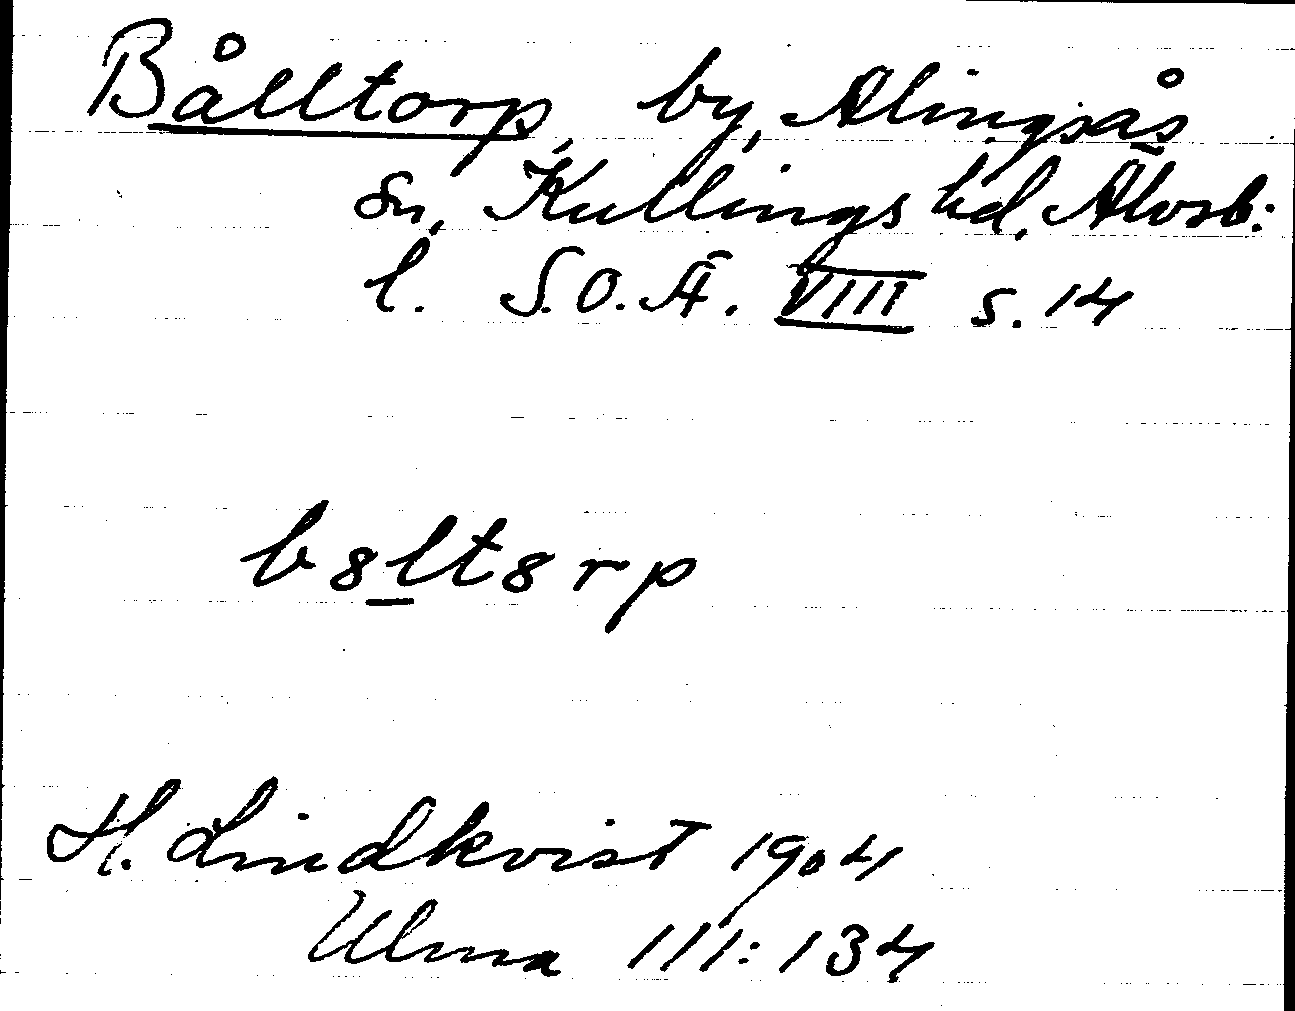 Bålltorp, by, Alingsås
sn, Kullings hd, Älvsb.
l. S.O.Ä. VIII s. 14
b8lt8rp
H. Lindkvist 1904
Ulma 111:134